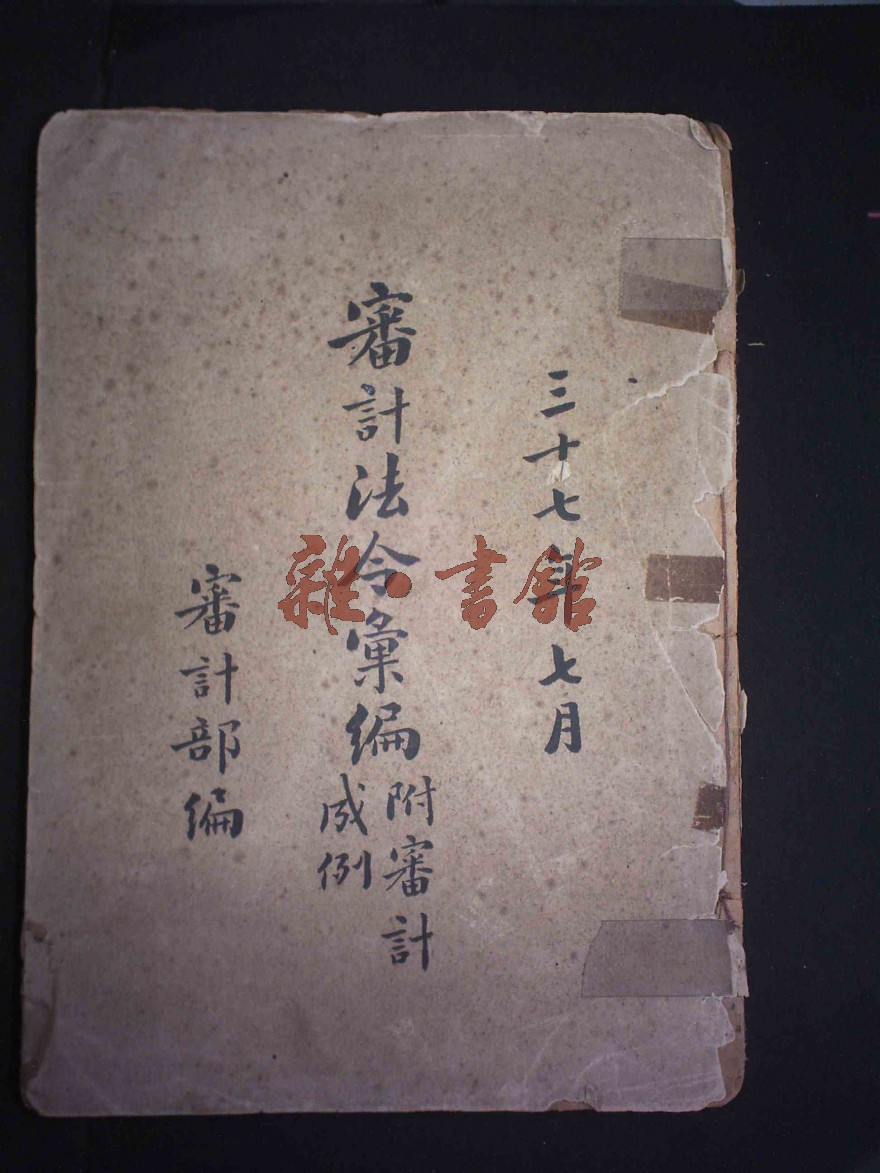 三十七年七月
審計法令彙編
附審計
成例
審計部編
雜·書館